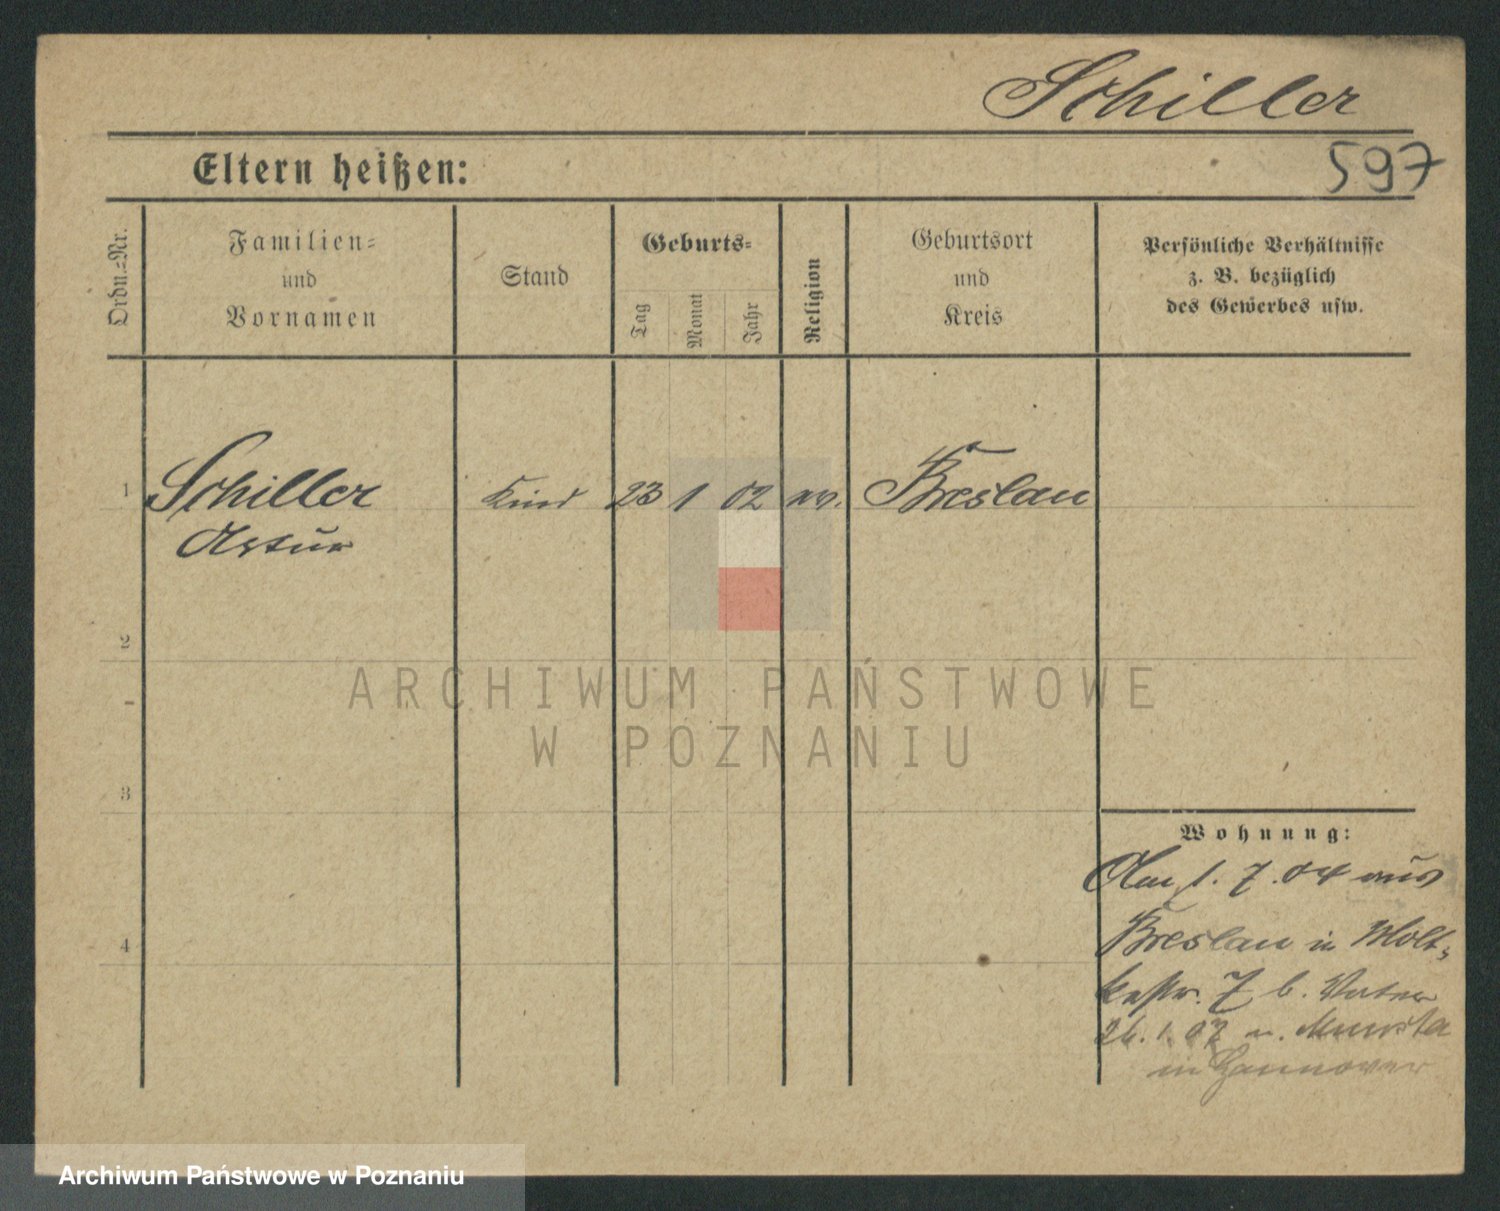 Schiller
Eltern heißen:
597
Ordn.=Nr.
Familien=
und
Vornamen
Stand
Geburts=
Tag
Monat
Jahr
Religion
Geburtsort
und
Kreis
Persönliche Verhältnisse
z. B. bezüglich
des Gewerbes usw.
1
Schiller
Artur
Kind
23
1
02
ev.
Breslau
2
3
4
Wohnung:
Am 1. 7. 04 aus
Breslau in Molt-
kestr. 7 b. Vater
26. 1. 07 n.
in Hannover
ARCHIWUM PAŃSTWOWE
W POZNANIU
Archiwum Państwowe w Poznaniu